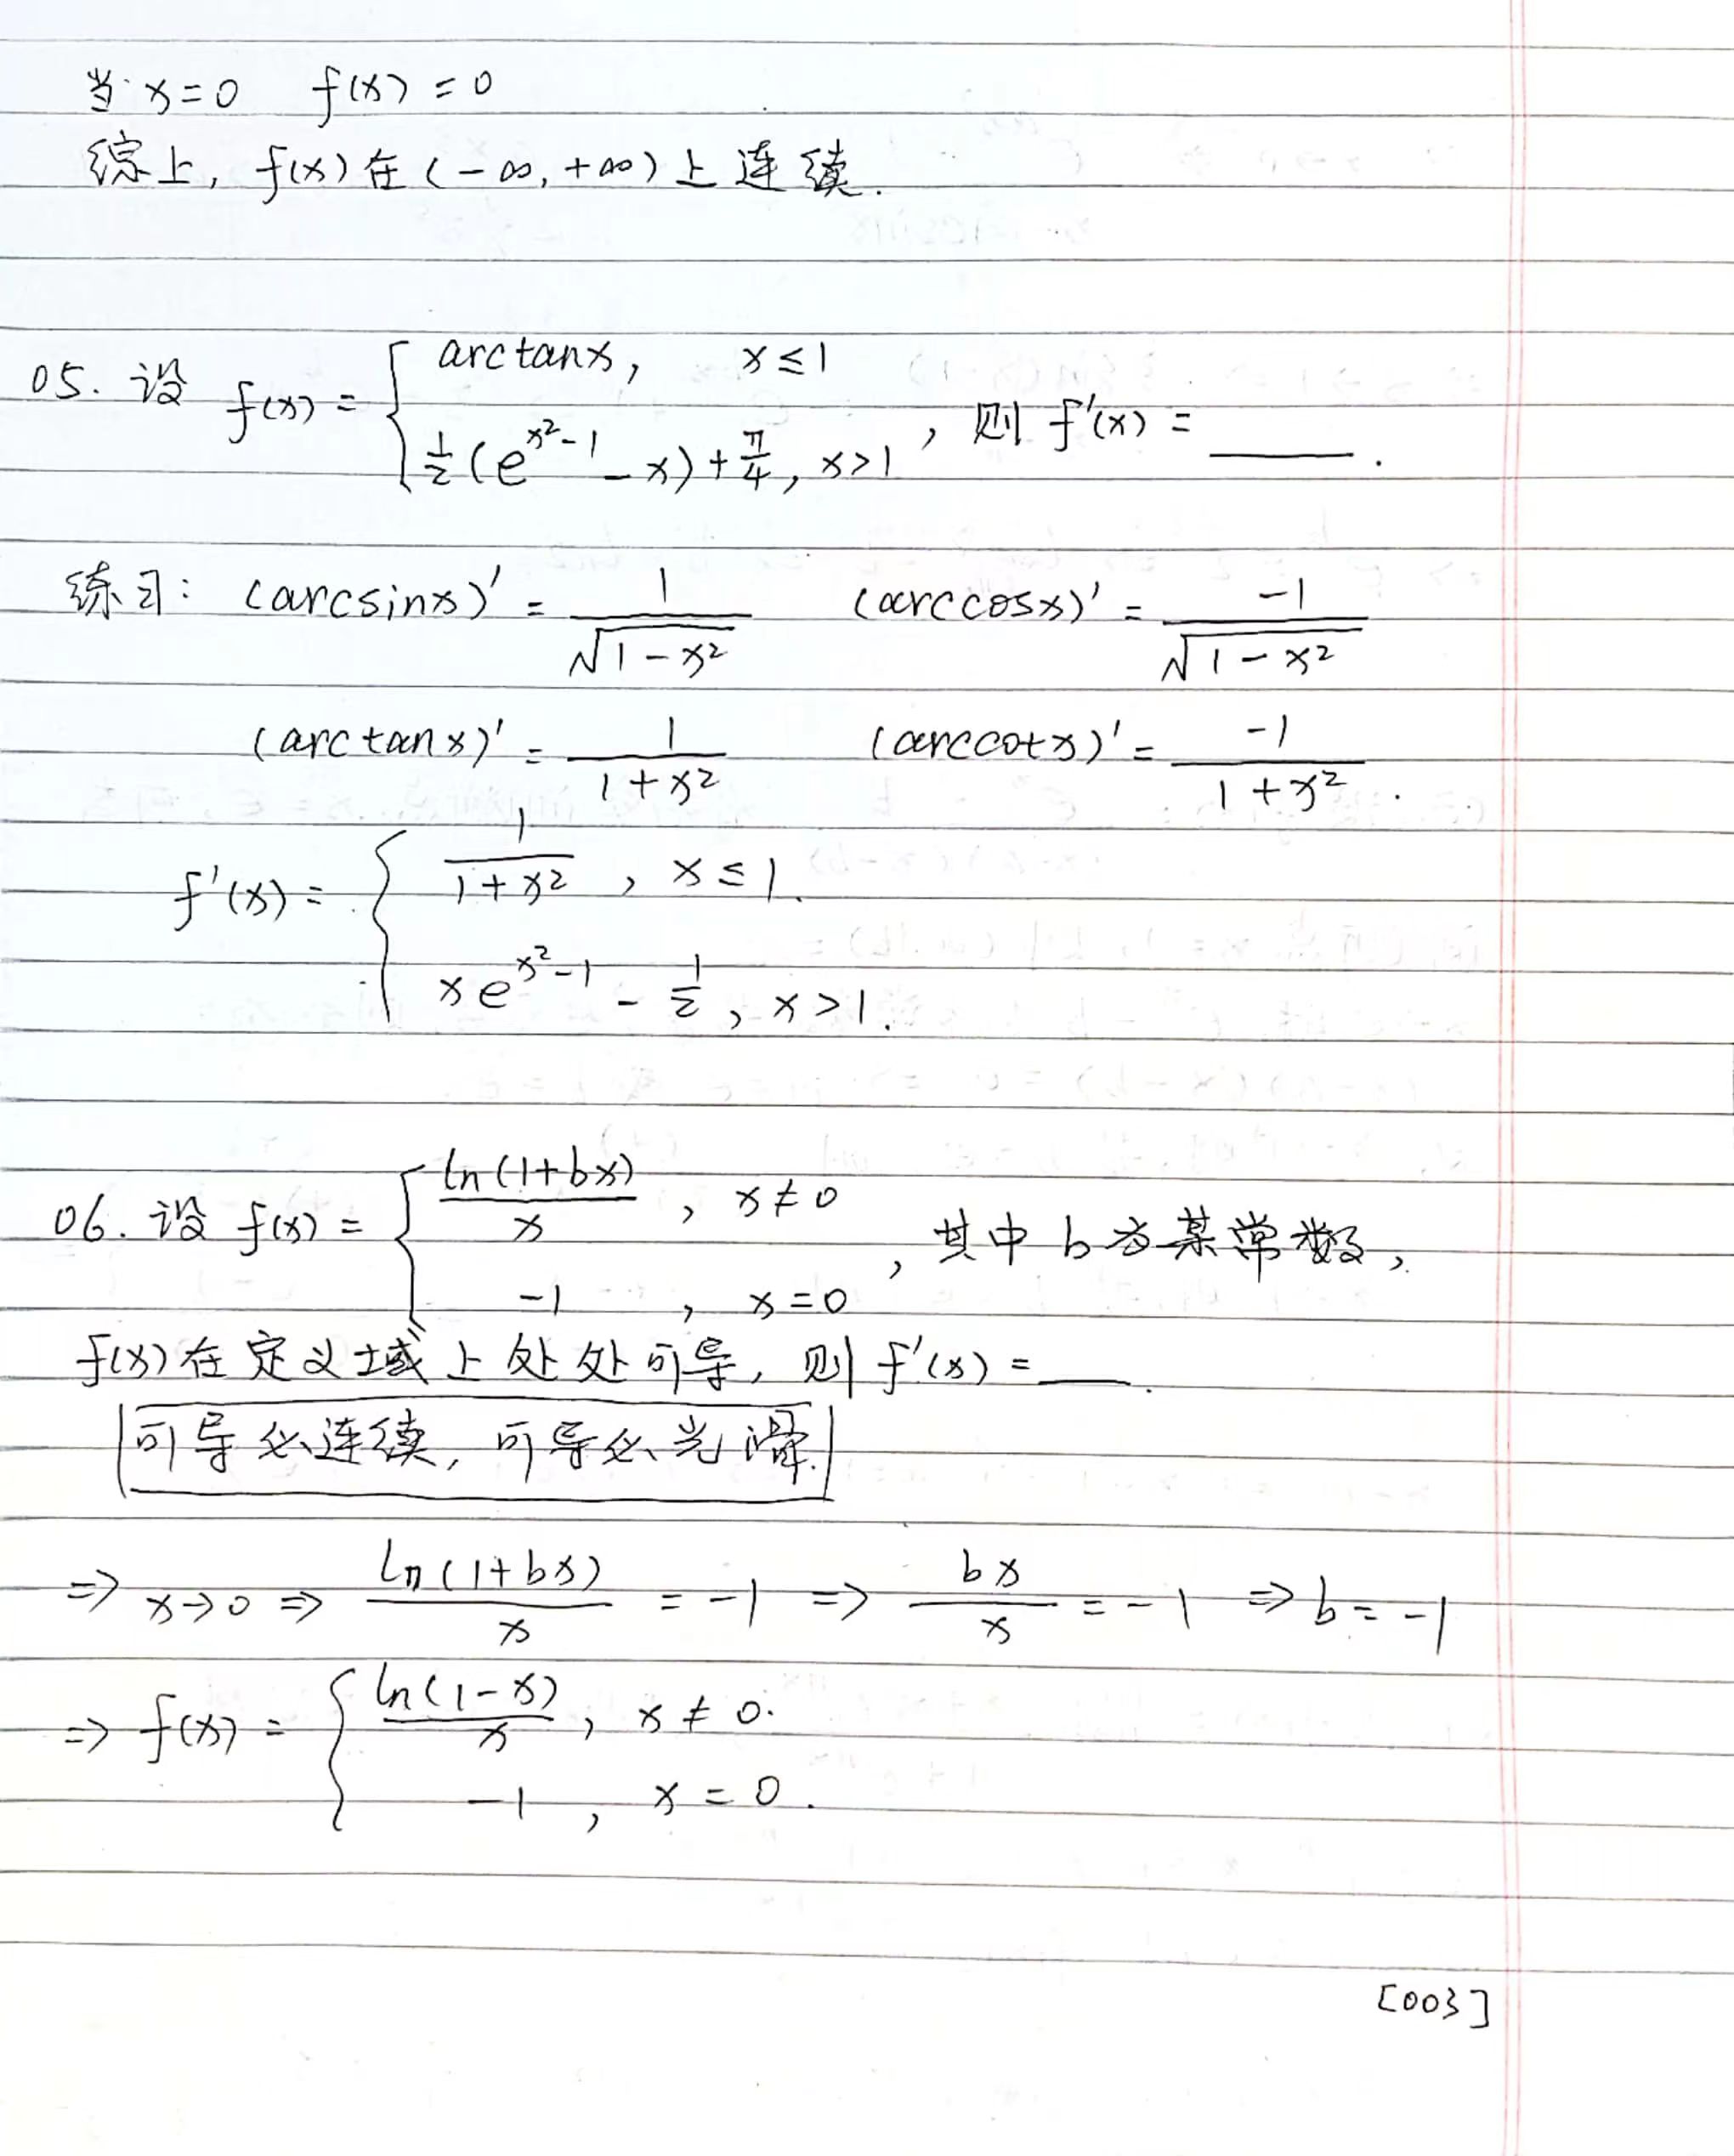 当 x=0 f(x)=0
综上, f(x)在(-∞,+∞)上连续.
05. 设 f(x)= { arctanx, x≤1
½(e^{x²-1}-x)+π/4, x>1 , 则 f'(x)=____.
练习: (arcsinx)' = 1/√(1-x²) (arccosx)' = -1/√(1-x²)
(arctanx)' = 1/(1+x²) (arccotx)' = -1/(1+x²).
f'(x)= { 1/(1+x²), x≤1.
xe^{x²-1} - ½, x>1.
06. 设 f(x)= { ln(1+bx)/x, x≠0
-1, x=0 , 其中b为某常数,
f(x)在定义域上处处可导, 则f'(x)=___.
可导必连续, 可导必光滑.
=> x→0 => ln(1+bx)/x = -1 => bx/x = -1 => b=-1
=> f(x)= { ln(1-x)/x, x≠0.
-1, x=0.
[003]